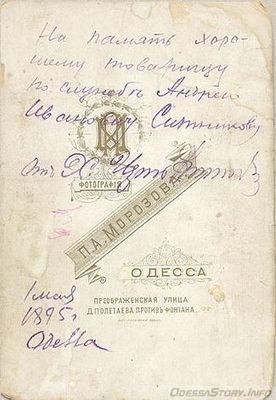 На память хоро-
шему товарищу
по службе Андрею
Ивановичу Ситникову
ПМ
ФОТОГРАФІЯ
от
П.А. МОРОЗОВА
ОДЕССА
ПРЕОБРАЖЕНСКАЯ УЛИЦА
Д. ПОЛЕТАЕВА, ПРОТИВЪ ФОНТАНА.
1 мая
1895 г
Одесса
OdessaStory.Info